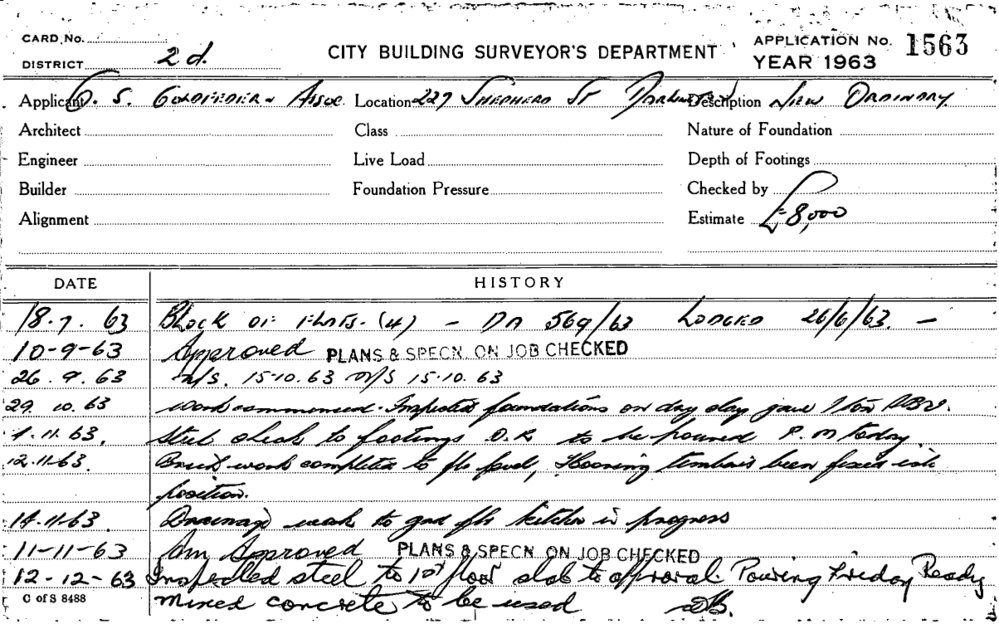 CARD No.
APPLICATION No. 1563
DISTRICT 2d.
CITY BUILDING SURVEYOR'S DEPARTMENT
YEAR 1963
Applicant O. S. Goldfeder & Assoc. Location 227 Shepherd St Darlington Description New Ordinary
Architect Class Nature of Foundation
Engineer Live Load Depth of Footings
Builder Foundation Pressure Checked by
Alignment Estimate £8,000
DATE HISTORY
18.7.63 Block of flats. (4) - DA 569/63 Lodged 26/6/63. -
10-9-63 Approved PLANS & SPECN. ON JOB CHECKED
26.9.63 n/S. 15-10.63 n/S 15.10.63
29.10.63 work commenced. Inspected foundations on dry clay gave 1 ton
1.11.63. Steel check to footings O.K to be poured P.M today.
12.11.63. work completed to flr level, Flooring timbers been fixed
position.
14.11.63. Drainage work to gnd flr kitchen in progress
11-11-63 Am Approved PLANS & SPECN ON JOB CHECKED
12-12-63 Inspected steel to 1st floor slab to approval. Pouring Friday Ready
C of S 8488 mixed concrete to be used